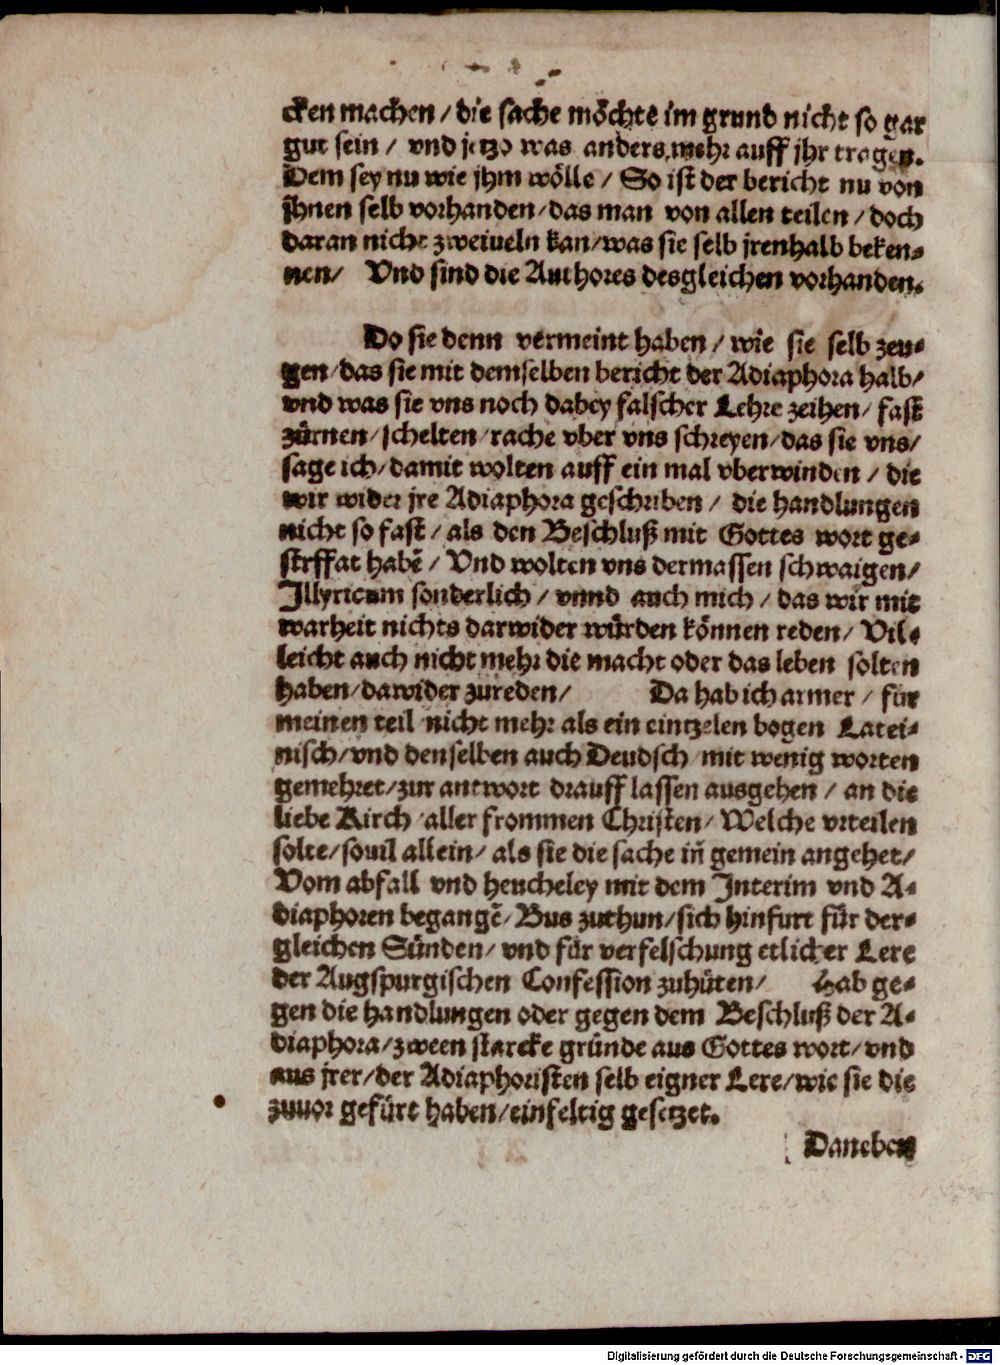 cken machen / die sache möchte im grund nicht so gar
gut sein / vnd jtzo was anders mehr auff jhr tragen.
Dem sey nu wie jhm wölle / So ist der bericht nu von
jhnen selb vorhanden / das man von allen teilen / doch
daran nicht zweiueln kan / was sie selb jrenhalb beken-
nen / Vnd sind die Authores desgleichen vorhanden.
Do sie denn vermeint haben / wie sie selb zeu-
gen / das sie mit demselben bericht der Adiaphora halb /
vnd was sie vns noch dabey falscher Lehre zeihen / fast
zürnen / schelten / rache vber vns schreyen / das sie vns /
sage ich / damit wolten auff ein mal vberwinden / die
wir wider jre Adiaphora geschriben / die handlungen
nicht so fast / als den Beschluß mit Gottes wort ge-
strffat habē / Vnd wolten vns dermassen schwaigen /
Illyricum sonderlich / vnnd auch mich / das wir mit
warheit nichts darwider würden können reden / Vil-
leicht auch nicht mehr die macht oder das leben solten
haben / dawider zureden / Da hab ich armer / für
meinen teil nicht mehr als ein eintzelen bogen Latei-
nisch / vnd denselben auch Deudsch mit wenig worten
gemehret / zur antwort drauff lassen ausgehen / an die
liebe Kirch aller frommen Christen / Welche vrteilen
solte / souil allein / als sie die sache in̄ gemein angehet /
Vom abfall vnd heucheley mit dem Interim vnd A-
diaphoren begangē / Bus zuthun / sich hinfurt für der-
gleichen Sünden / vnd für verfelschung etlicher Lere
der Augspurgischen Confession zuhüten / Hab ge-
gen die handlungen oder gegen dem Beschluß der A-
diaphora / zween starcke gründe aus Gottes wort / vnd
aus jrer / der Adiaphoristen selb eigner Lere / wie sie die
zuuor gefürt haben / einfeltig gesetzet.
Daneben
Digitalisierung gefördert durch die Deutsche Forschungsgemeinschaft - DFG